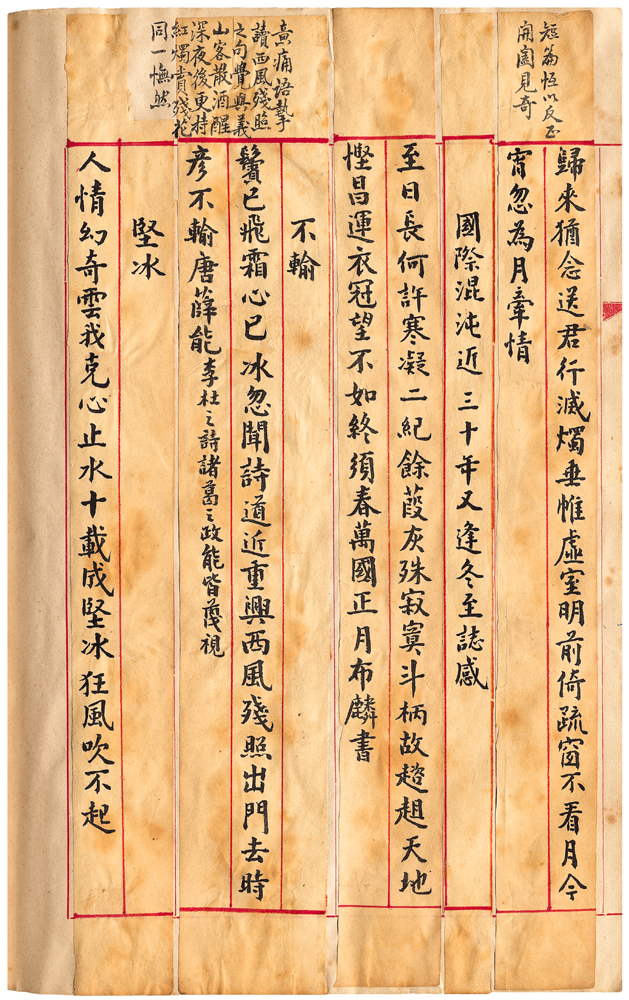 短篇恆以反正
開闔見奇
歸來猶念送君行滅燭垂帷虛室明前倚疏窗不看月今
宵忽為月牽情
國際混沌近三十年又逢冬至誌感
至日長何許寒凝二紀餘葭灰殊寂寞斗柄故趑趄天地
慳昌運衣冠望不如終須春萬國正月布麟書
意痛語摯
讀西風殘照
之句覺與義
山客散酒醒
深夜後更持
紅燭賞殘花
同一憮然
不輸
鬢已飛霜心已冰忽聞詩道近重興西風殘照出門去時
彥不輸唐薛能李杜之詩諸葛之政能皆蔑視
堅冰
人情幻奇雲我克心止水十載成堅冰狂風吹不起